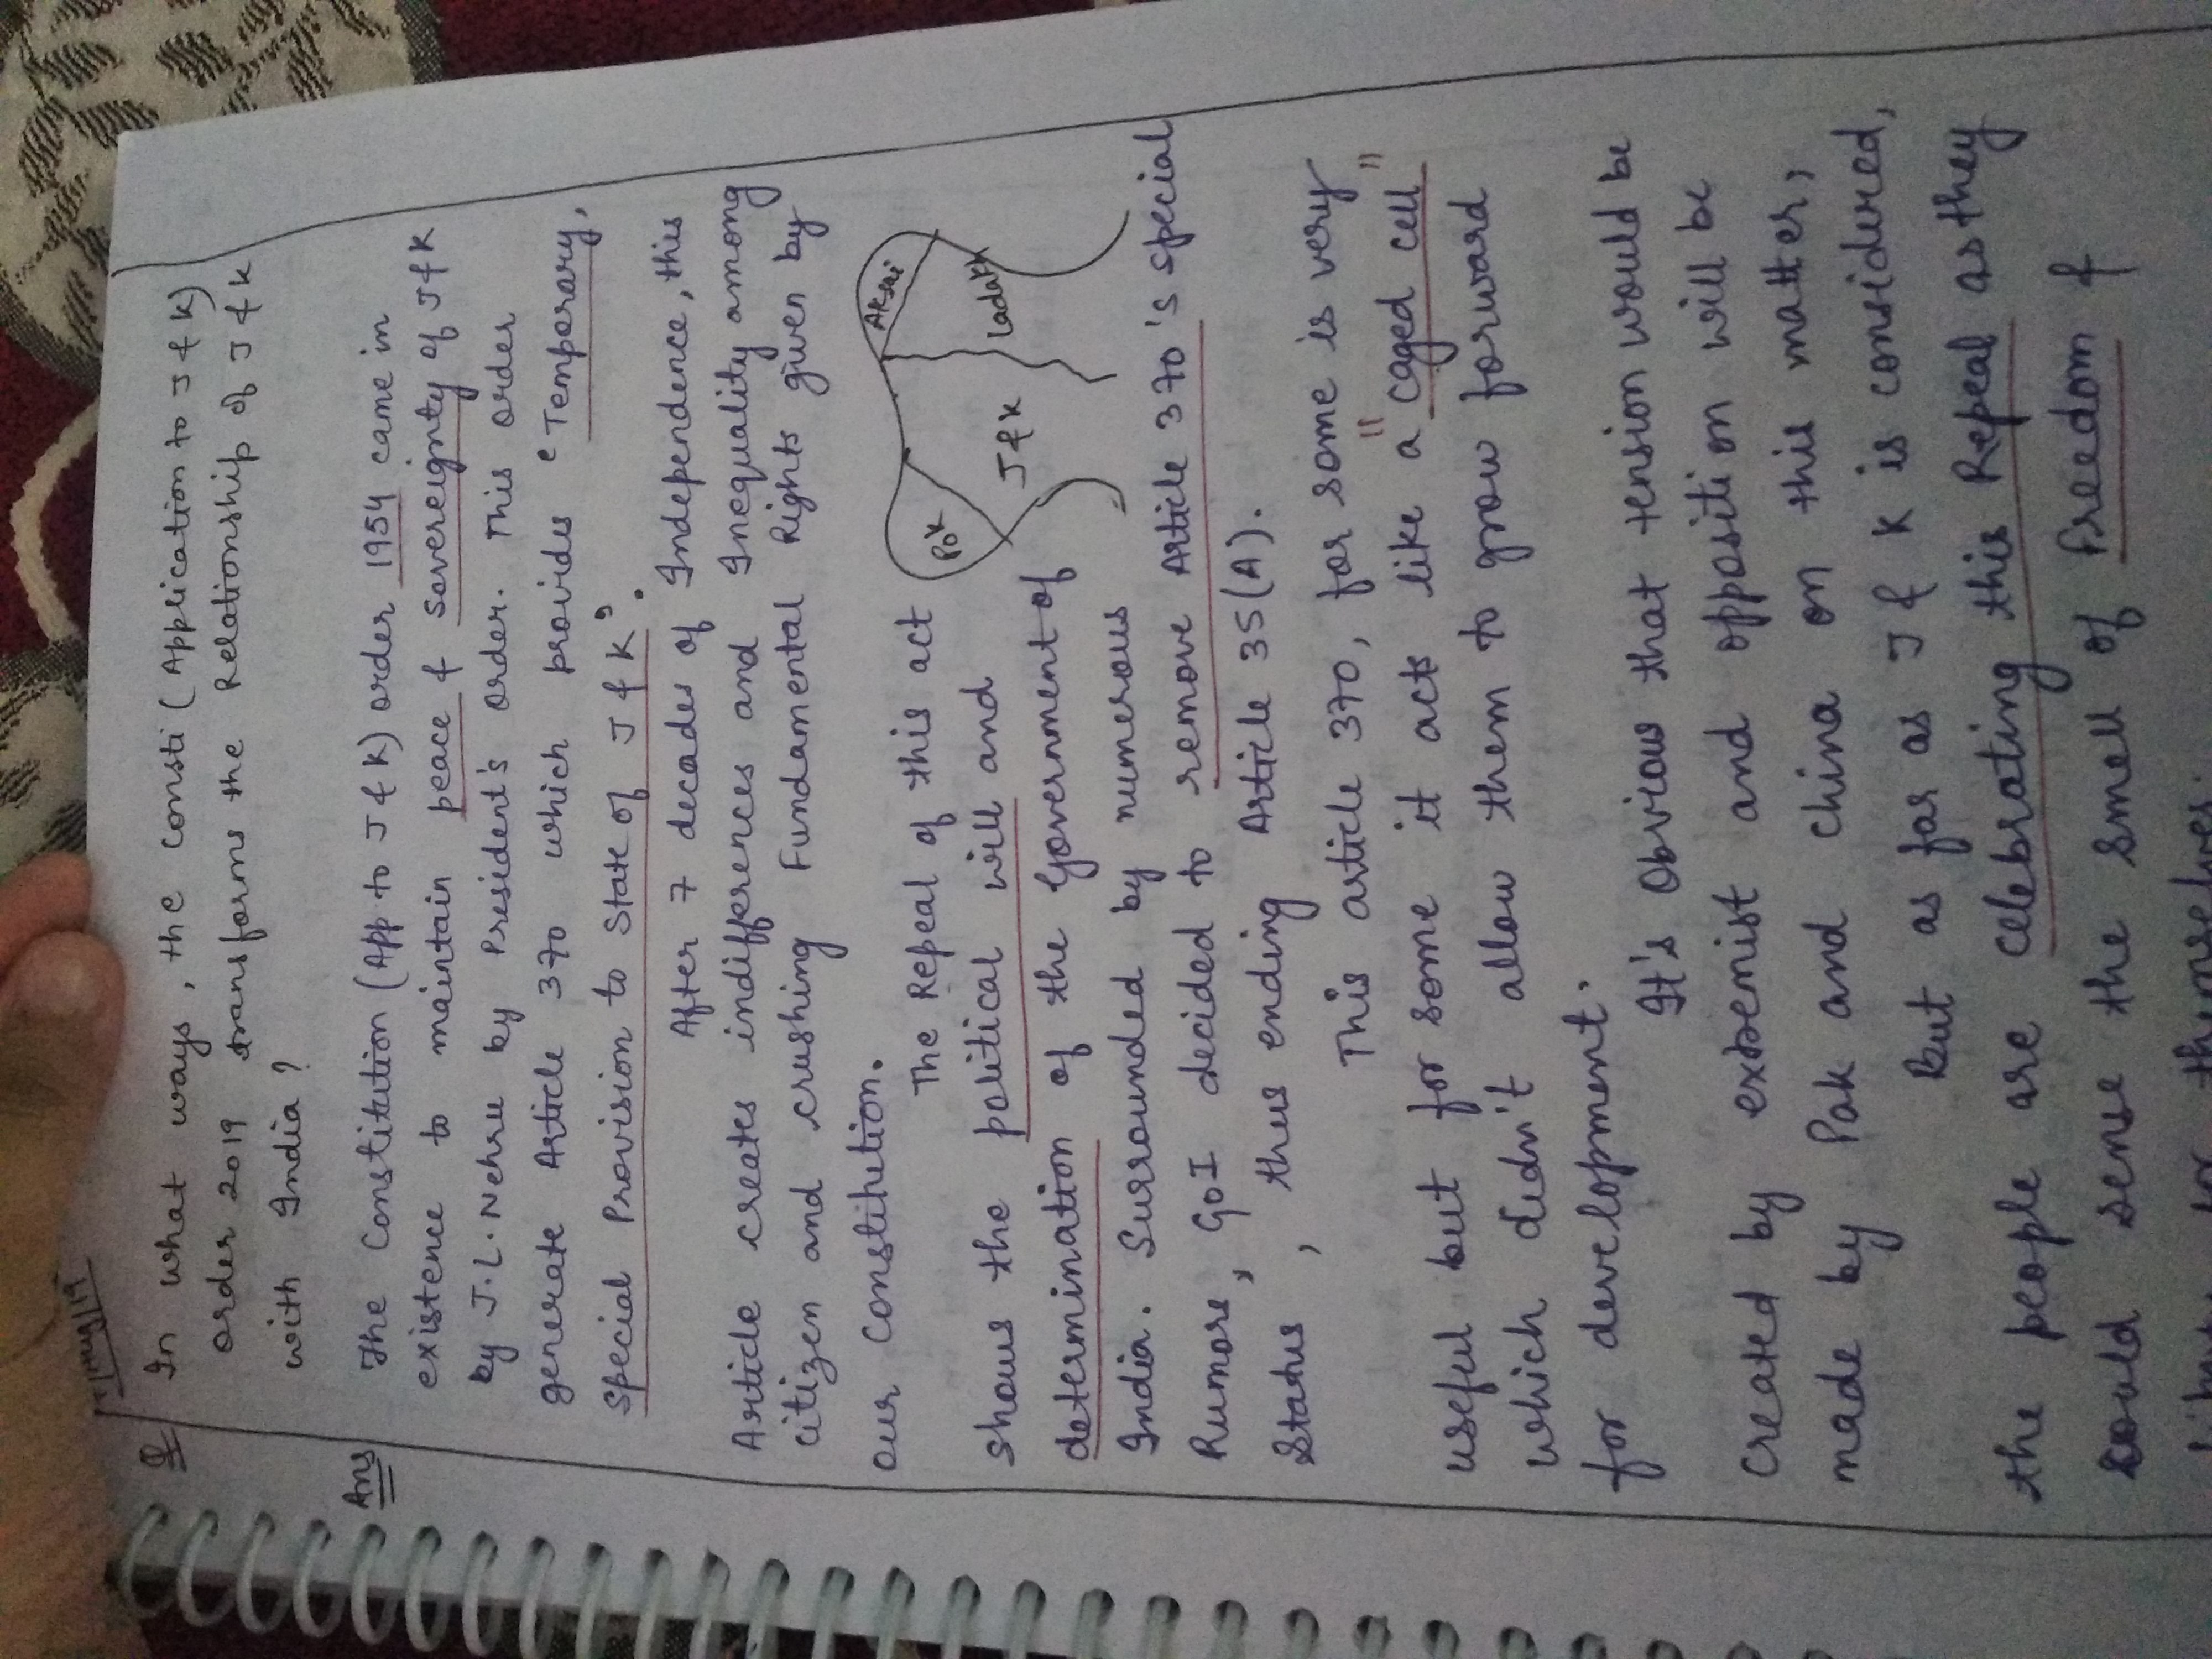 Q In what ways, the consti (Application to J & K)
order 2019 transforms the Relationship of J & K
with India ?
Ans The Constitution (App to J & K) order 1954 came in
existence to maintain peace & sovereignty of J & K
by J.L. Nehru by President's order. This order
generate Article 370 which provides ‘Temporary,
Special Provision to State of J & K’.
After 7 decades of Independence, this
Article creates indifferences and Inequality among
citizen and crushing Fundamental Rights given by
our Constitution.
The Repeal of this act
shows the political will and
determination of the Government of
India. Surrounded by numerous
Rumors, GoI decided to remove Article 370's special
Status, thus ending Article 35(A).
Aksai
Ladakh
J & K
PoK
This article 370, for some is very
useful but for some it acts like a "caged cell"
which didn't allow them to grow forward
for development.
It's Obvious that tension would be
created by extremist and opposition will be
made by Pak and China on this matter,
but as far as J & K is considered,
the people are celebrating this Repeal as they
could sense the smell of freedom &